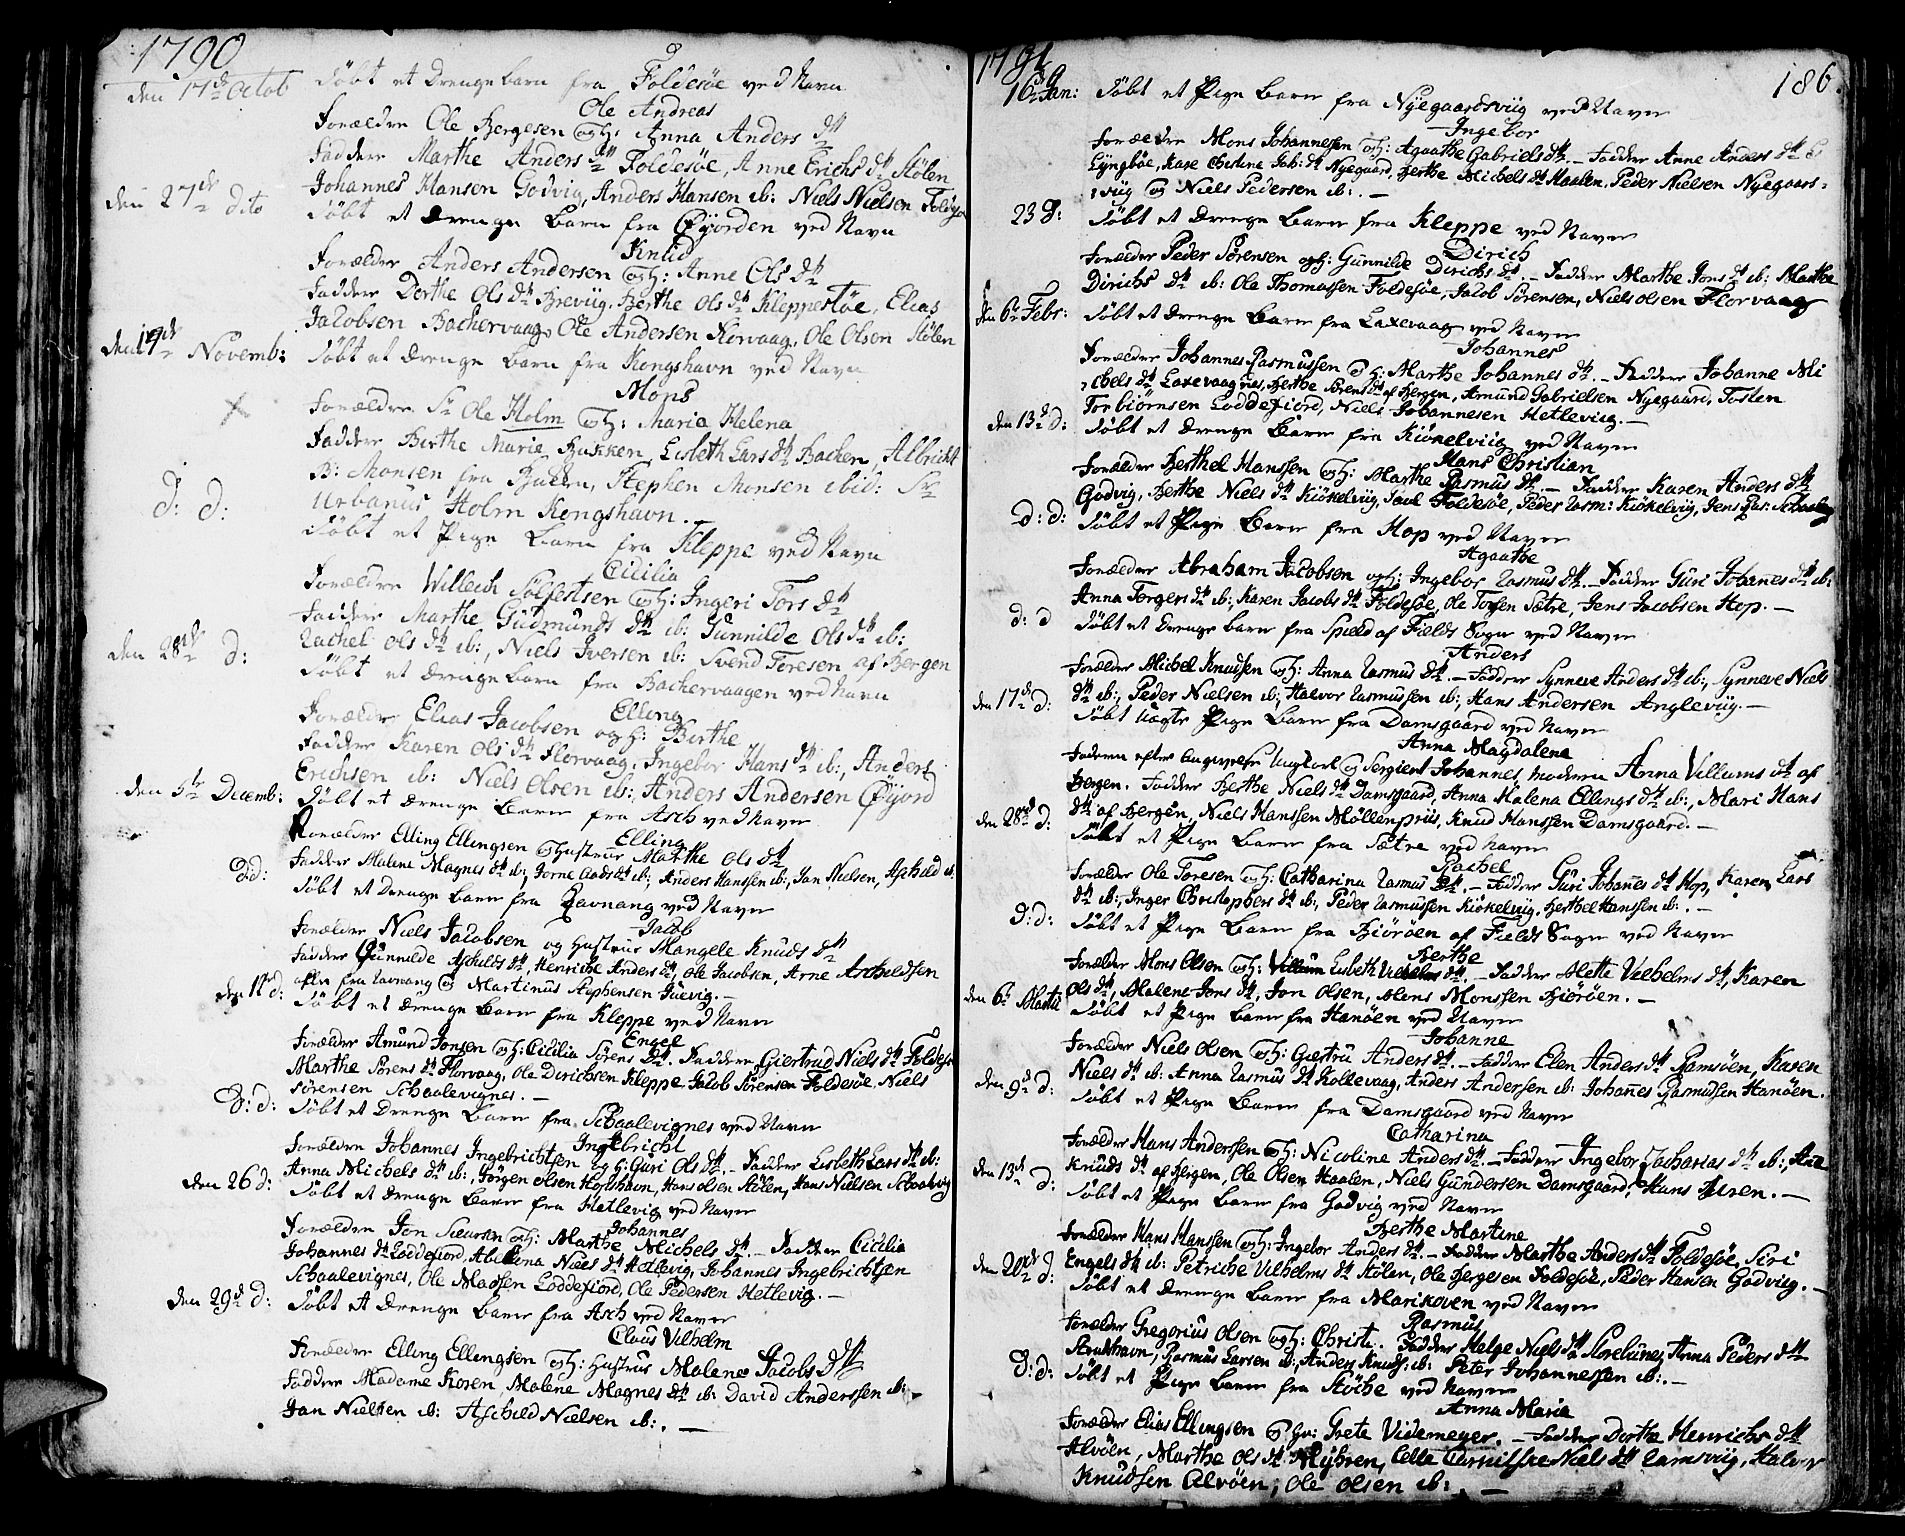 1790
den 17de Octob döbt et Drengebarn fra Foldesöe ved Navn
Ole Andreas
Forældre Ole Bergesen og H: Anna Anders dtr
Faddere Marthe Anders dtr Foldesöe, Anne Erichs dtr Stölen
Johannes Hansen Godvig, Anders Hansen ib: Niels Nielsen
den 27de dito döbt et Drenge Barn fra Öyjorden ved Navn
Knud
Forældre Anders Andersen og H: Anne Ols dtr
Faddere Dorthe Ols dtr Breviig, Berthe Ols dtr Kleppestöe, Elias
Jacobsen Bachervaag, Ole Andersen Florvaag, Ole Olsen Stölen
den Novemb: döbt et Drenge Barn fra Kongshavn ved Navn
Mons
Forældre Sr Ole Holm og H: Maria Helena
Faddere Birthe Marie, Bukken, Lisbeth Lars dtr Backen, Albricht
B: Monsen fra Bukken, Stephen Monsen ibid: Sr
Urbanus Holm Kongshavn.
d: d: döbt et Pige Barn fra Kleppe ved Navn
Cicilia
Forældre Willech Sölfestsen og H: Ingeri Tors dtr
Faddere Marthe Gudmunds dtr ib: Gunnilde Ols dtr ib:
Rachel Ols dtr ib:, Niels Iversen ib: Svend Toresen af Bergen
den 28de d: döbt et Drengebarn fra Bachervaagen ved Navn
Elling
Forældre Elias Jacobsen og H: Birthe
Faddere Karen Ols dtr Florvaag, Ingebor Hans dtr ib:, Anders
Erichsen ib: Niels Olsen ib:, Anders Andersen Öyjord
den 5te Decemb: döbt et Drenge Barn fra Asch ved Navn
Elling
Forældre Elling Ellingsen og Hustrue Marthe Ols dtr
Faddere Malene Magnes dtr ib:, Anders Hanssen ib:, Jan Nielsen, Aschild ib
d: d: döbt et Drenge Barn fra Ravnang ved Navn
Jacob
Forældre Niels Jacobsen og Hustrue Mangele Knuds dtr
Faddere Gunnilde Aschilds dtr, Henriche Anders dtr, Ole Jacobsen, Arne Ascheldsen
alle fra Ravnang og Martinus Stephensen Juevig.
den d: döbt et Drenge Barn fra Kleppe ved Navn
Engel
Forælder Amund Jonsen og H: Cicilia Sörens dtr. Faddere Giertrud Niels dtr Foldesöe
Marthe Sörens dtr Florvaag, Ole Dirichsen Kleppe Jacob Sörensen Foldesöe, Niels
Sörensen Schaalevignes.
d: d: döbt et Drenge Barn fra Schaalevignes ved Navn
Ingebricht
Forældre Johannes Ingebrichtsen og H: Guri Ols dtr. Faddere Lisbeth Lars dtr ib:
Anna Michels dtr ib:, Jörgen Olsen, Hans Olsen Stölen, Hans Nielsen Schaalevig
den 26 d: döbt et Drenge Barn fra Hetlevig ved Navn
Johannes
Forældre Jon og H: Marthe Michels dtr. Faddere Cicilia
Johannes dtr Loddefiord, Abelona Niels dtr Hetlevig, Johannes Ingebrichtsen
Schaalevignes, Ole Madsen Loddefiord, Ole Pedersen Hetlevig.
den 29de d: döbt et Drenge Barn fra Asch ved Navn
Claus Vilhelm
Forældre Elling Ellingsen og H: Hustrue Malene Jacobs dtr
Faddere Madame Koren, Malene Magnes dtr ib: David Anderssen ib:
Jan Nielsen ib: Aschild Nielsen ib:.
1791
186
16de Jan: döbt et Pige Barn fra Nyegaardsviig ved Navn
Ingebor
Forældre Mons Johannesen og H: Agaathe Gabriels dtr. Faddere Anne Anders dtr
Lyngböe, Kare Chestine Jab: dtr Nyegaard, Berthe Michels dtr Haalen, Peder Nielsen Nyegaars-
viig og Niels Pedersen ib:.
23 d: döbt et Drenge Barn fra Kleppe ved Navn
Dirich
Forælder Peder Sörensen og H: Gunnilde Dirichs dtr. Fadder Marthe Jons dtr ib: Marthe
Dirichs dtr ib: Ole Thomassen Foldesöe, Jacob Sörensen, Niels Olsen Florvaag
den 6te Febr: döbt et Drenge Barn fra Laxevaag ved Navn
Johannes
Forælder Johannes Rasmussen og H: Marthe Johannes dtr. Fadder Johanne Mi
chels dtr Laxevaagnes, Berthe Sörens dtr af Bergen, Amund Gabrielsen Nyegaard, Tosten
Torbiörnsen Loddefiord, Niels Johannesen Hetleviig.
den 13de d: döbt et Drenge Barn fra Kiökelviig ved Navn
Hans Christian
Forælder Berthel Hanssen og H: Marthe Rasmus dtr. Fadder Karen Anders dtr
Godvig, Berthe Niels dtr Kiökelviig, Foldesöe, Peder Rasm: Kiökelviig, Jens Ras: Schaalevig
d: d: döbt et Pige Barn fra Hop ved Navn
Agaathe
Forælder Abraham Jacobsen og H: Ingebor Rasmus dtr. Fadder Guri Johanes dtr ib:
Anna Torgers dtr ib, Karen Jacobs dtr Foldesöe, Ole Torssen Sætre, Jens Jacobsen Hop.
d: d döbt et Drenge Barn fra Spield af Fields Sogn ved Navn
Anders
Forælder Michel Knudsen og H: Anna Rasmus dtr. Fadder Synneve Anders dtr ib:, Synneve Niels
dtr ib:, Peder Nielsen ib:, Halvor Rasmussen ib:, Hans Andersen Angleviig.
den 17de d: döbt uægte Pige Barn fra Damsgaard ved Navn
Anna Magdalena
Faderen efter Angivelse Ungkarl og Sergient Johannes, Moderen Anna Villums dtr af
Bergen. Fadder Berthe Niels dtr Damsgaard, Anna Malena Ellings dtr ib:, Mari Hans
dtr af Bergen, Niels Hanssen Möllenpriis, Knud Hanssen Damsgaard.
den 28de d: döbt et Pige Barn fra Sætre ved Navn
Rachel
Forælder Ole Toresen og H: Catharina Rasmus dtr. Fadder Guri Johannes dtr Hop, Karen Lars
dtr ib:, Inger Christophers dtr ib:, Peder Rasmussen Kiökelviig, Berthel Hanssen ib:.
d: d: döbt et Pige Barn fra Biöröen af Fields Sogn ved Navn
Berthe
Forælder Mons Olsen og H: Lisbeth Vilhelms dtr. Fadder Mette Vilhelms dtr, Karen
Ols dtr, Malene Jons dtr, Jon Olsen, Mons Monssen Biöröen.
den 6te Martii döbt et Pige Barn fra Hanöen ved Navn
Johanne
Forælder Niels Olsen og H: Giertru Anders dtr. Fadder Elen Anders dtr Ramsöen, Karen
Niels dtr ib: Anna Rasmus dtr Kollevaag, Anders Andersen ib: Johanes Rasmussen Hanöen.
den 9de d: döbt et Pige Barn fra Damsgaard ved Navn
Catharina
Forælder Hans Anderssen og H: Nicoline Anders dtr. Fadder Ingebor Zacharias dtr ib:,
Knuds dtr af Bergen, Ole Olsen Haalen, Niels Gundersen Damsgaard, Hans Juren.
den 13de d: döbt et Pige Barn fra Godvig ved Navn
Berthe Martine
Forælder Hans Hanssen og H: Ingebor Anders dtr. Fadder Marthe Anders dtr Foldesöe, Siri
Engels dtr ib: Petriche Vilhelms dtr Stölen, Ole Bergesen Foldesöe, Peder Hansen Godviig.
den 20de d: döbt et Drenge Barn fra Marikoven ved Navn
Rasmus
Forælder Gregorius Olsen og H: Christi. Fadder Helge Niels dtr Storelunes, Anna Peders dtr
Strudshavn, Rasmus Larsen ib:, Anders Knuds: ib: Peter Johannessen ib:.
d: d: döbt et Pige Barn fra Stöche ved Navn
Anna Maria
Forælder Elias Ellingsen og H: Greta Videmeyer. Fadder Dorthe Henrichs dtr
Alvöen, Marthe Ols dtr Myhren, Niels dtr Ramsviig, Halvor
Knudsen Alvöen, Ole Olsen ib:.